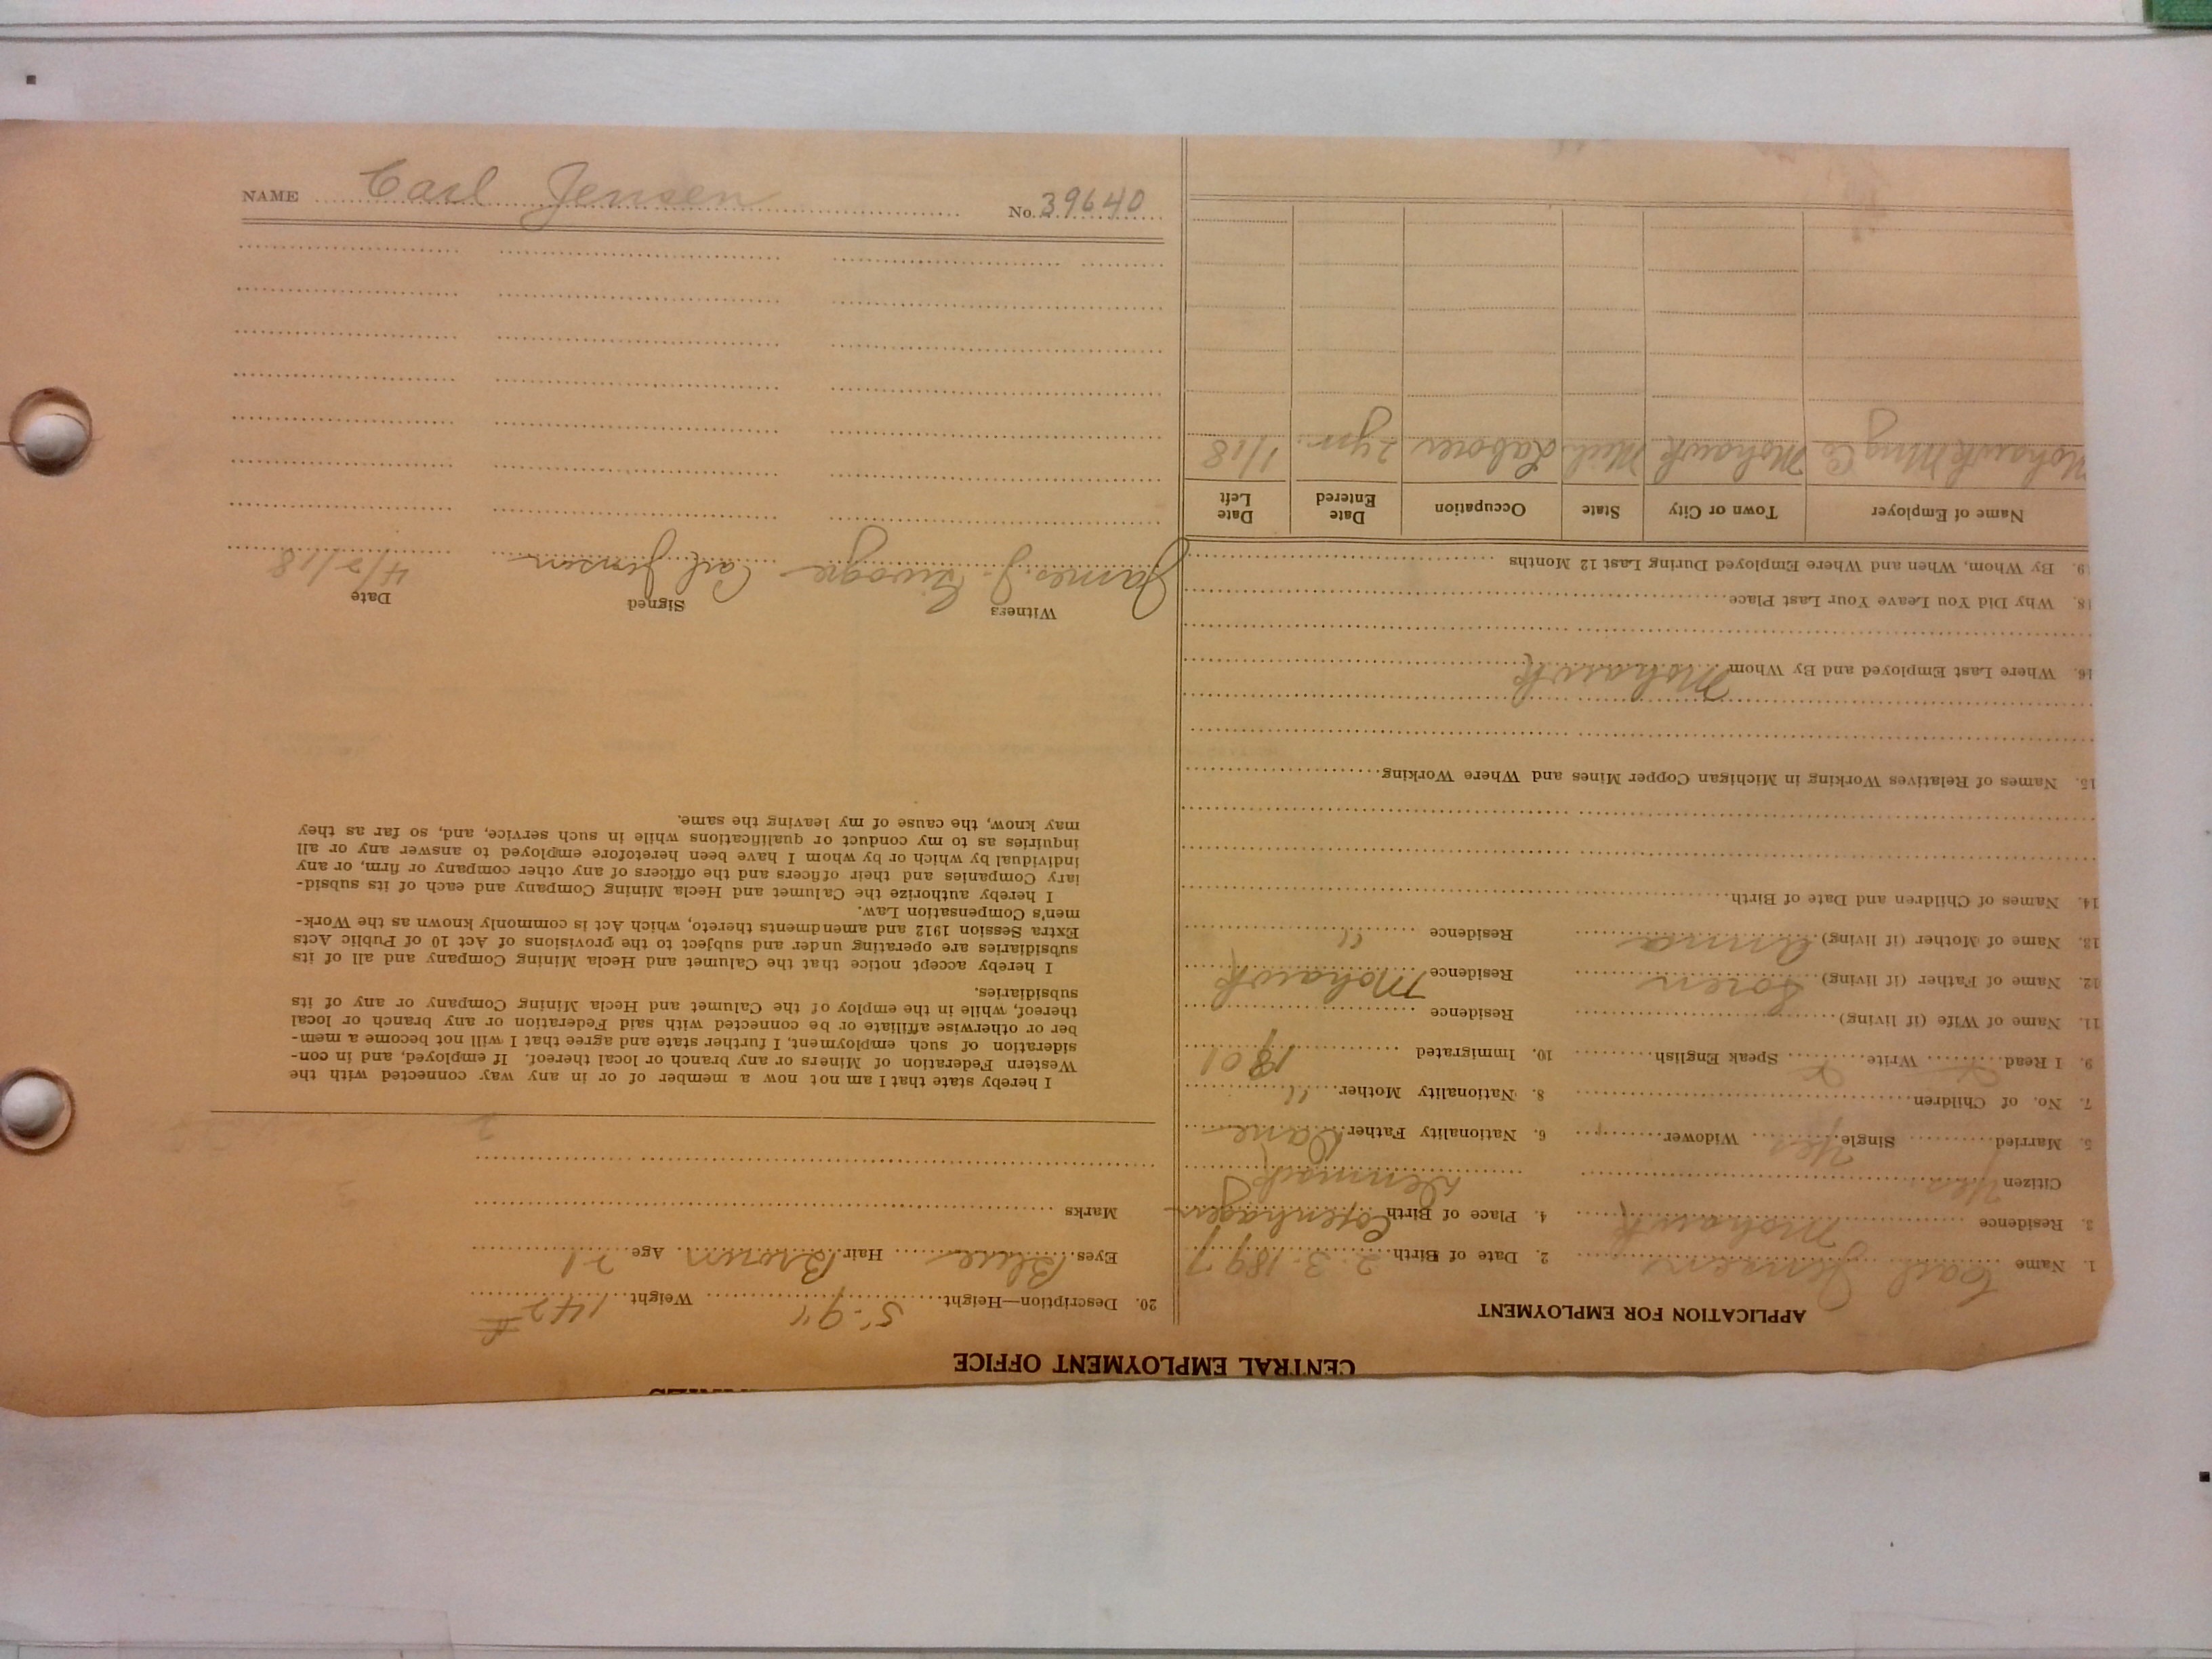 NAME Carl Jensen No. 39640
CENTRAL EMPLOYMENT OFFICE
APPLICATION FOR EMPLOYMENT
1. Name Carl Jensen 2. Date of Birth 2-3-1897
3. Residence Mohawk 4. Place of Birth Copenhagen
Citizen Yes Denmark
5. Married Single Yes Widower 6. Nationality Father Dane
7. No. of Children 8. Nationality Mother "
9. I Read Write Speak English 10. Immigrated 1901
11. Name of Wife (if living) Residence
12. Name of Father (if living) Soren Residence Mohawk
13. Name of Mother (if living) Anna Residence "
14. Names of Children and Date of Birth
15. Names of Relatives Working in Michigan Copper Mines and Where Working
16. Where Last Employed and By Whom Mohawk
18. Why Did You Leave Your Last Place
19. By Whom, When and Where Employed During Last 12 Months
Name of Employer Town or City State Occupation Date Entered Date Left
Mohawk Mng Co Mohawk Mich Laborer 2 yrs. 1/18
20. Description—Height 5'-9½" Weight 142#
Eyes Blue Hair Brown Age 21
Marks
I hereby state that I am not now a member of or in any way connected with the
Western Federation of Miners or any branch or local thereof. If employed, and in con-
sideration of such employment, I further state and agree that I will not become a mem-
ber or otherwise affiliate or be connected with said Federation or any branch or local
thereof, while in the employ of the Calumet and Hecla Mining Company or any of its
subsidiaries.
I hereby accept notice that the Calumet and Hecla Mining Company and all of its
subsidiaries are operating under and subject to the provisions of Act 10 of Public Acts
Extra Session 1912 and amendments thereto, which Act is commonly known as the Work-
men's Compensation Law.
I hereby authorize the Calumet and Hecla Mining Company and each of its subsid-
iary Companies and their officers and the officers of any other company or firm, or any
individual by which or by whom I have been heretofore employed to answer any or all
inquiries as to my conduct or qualifications while in such service, and, so far as they
may know, the cause of my leaving the same.
Witness Signed Date
James J. Carl Jensen 4/2/18